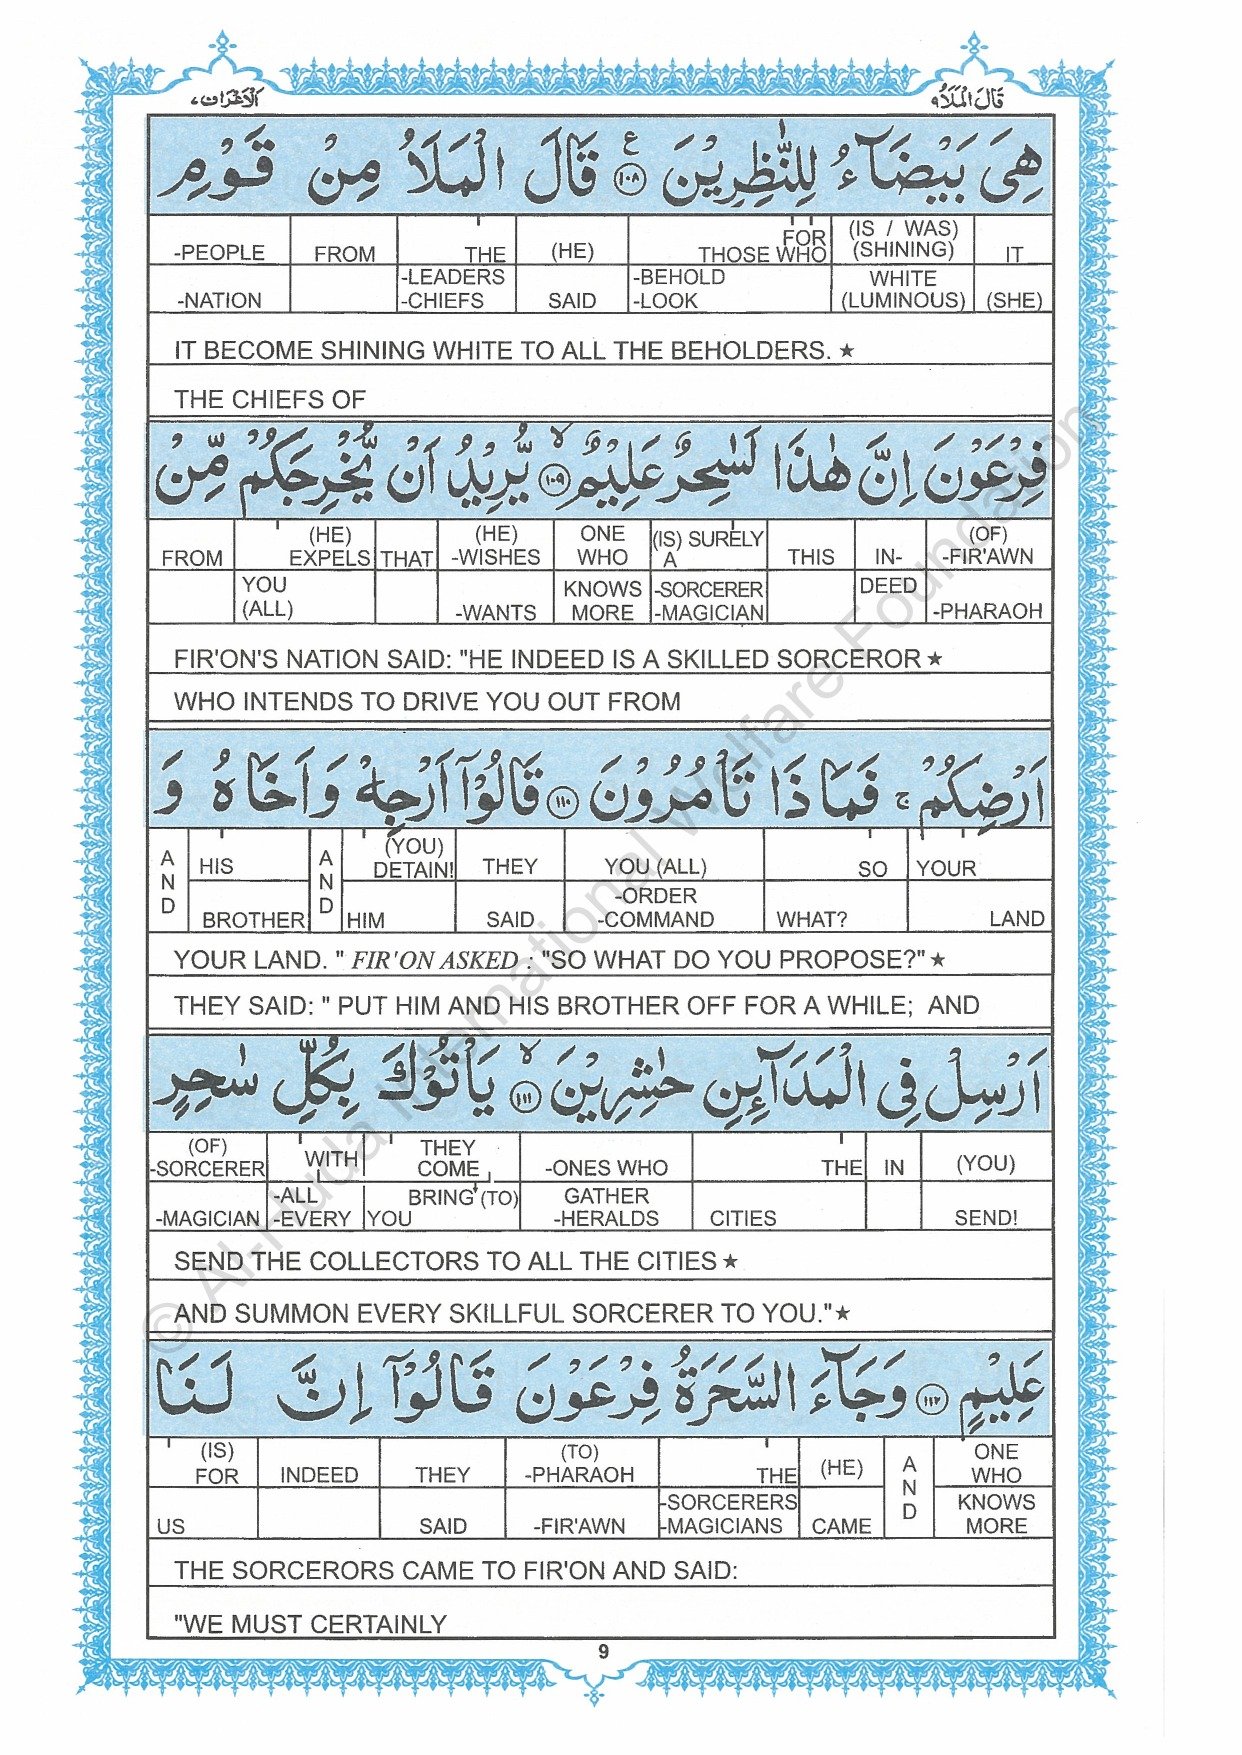 قَالَ الْمَلَاُ ٩ الْاَعْرَاف ٧
هِیَ بَیْضَآءُ لِلنّٰظِرِیْنَ ﴿۱۰۸﴾ ع قَالَ الْمَلَاُ مِنْ قَوْمِ
-PEOPLE FROM THE (HE) FOR THOSE WHO (IS / WAS) (SHINING) IT
-NATION -LEADERS -CHIEFS SAID -BEHOLD -LOOK WHITE (LUMINOUS) (SHE)
IT BECOME SHINING WHITE TO ALL THE BEHOLDERS. ★
THE CHIEFS OF
فِرْعَوْنَ اِنَّ هٰذَا لَسٰحِرٌ عَلِیْمٌ ﴿۱۰۹﴾ لا یُّرِیْدُ اَنْ یُّخْرِجَكُمْ مِّنْ
FROM (HE) EXPELS THAT (HE) -WISHES ONE WHO (IS) SURELY A THIS IN- (OF) -FIR'AWN
YOU (ALL) -WANTS KNOWS MORE -SORCERER -MAGICIAN DEED -PHARAOH
FIR'ON'S NATION SAID: "HE INDEED IS A SKILLED SORCEROR ★
WHO INTENDS TO DRIVE YOU OUT FROM
اَرْضِكُمْ ج فَمَا ذَا تَاْمُرُوْنَ ﴿۱۱۰﴾ قَالُوْۤا اَرْجِهْ وَ اَخَاهُ وَ
AND HIS AND (YOU) DETAIN! THEY YOU (ALL) SO YOUR
BROTHER HIM SAID -ORDER -COMMAND WHAT? LAND
YOUR LAND. " FIR'ON ASKED : "SO WHAT DO YOU PROPOSE?" ★
THEY SAID: " PUT HIM AND HIS BROTHER OFF FOR A WHILE; AND
اَرْسِلْ فِی الْمَدَآىِٕنِ حٰشِرِیْنَ ﴿۱۱۱﴾ لا یَاْتُوْكَ بِكُلِّ سٰحِرٍ
(OF) -SORCERER WITH THEY COME -ONES WHO THE IN (YOU)
-MAGICIAN -ALL -EVERY YOU BRING (TO) GATHER -HERALDS CITIES SEND!
SEND THE COLLECTORS TO ALL THE CITIES ★
AND SUMMON EVERY SKILLFUL SORCERER TO YOU." ★
عَلِیْمٍ ﴿۱۱۲﴾ وَ جَآءَ السَّحَرَةُ فِرْعَوْنَ قَالُوْۤا اِنَّ لَنَا
(IS) FOR INDEED THEY (TO) -PHARAOH THE (HE) AND ONE WHO
US SAID -FIR'AWN -SORCERERS -MAGICIANS CAME KNOWS MORE
THE SORCERORS CAME TO FIR'ON AND SAID:
"WE MUST CERTAINLY
9
© Al-Huda International Welfare Foundation